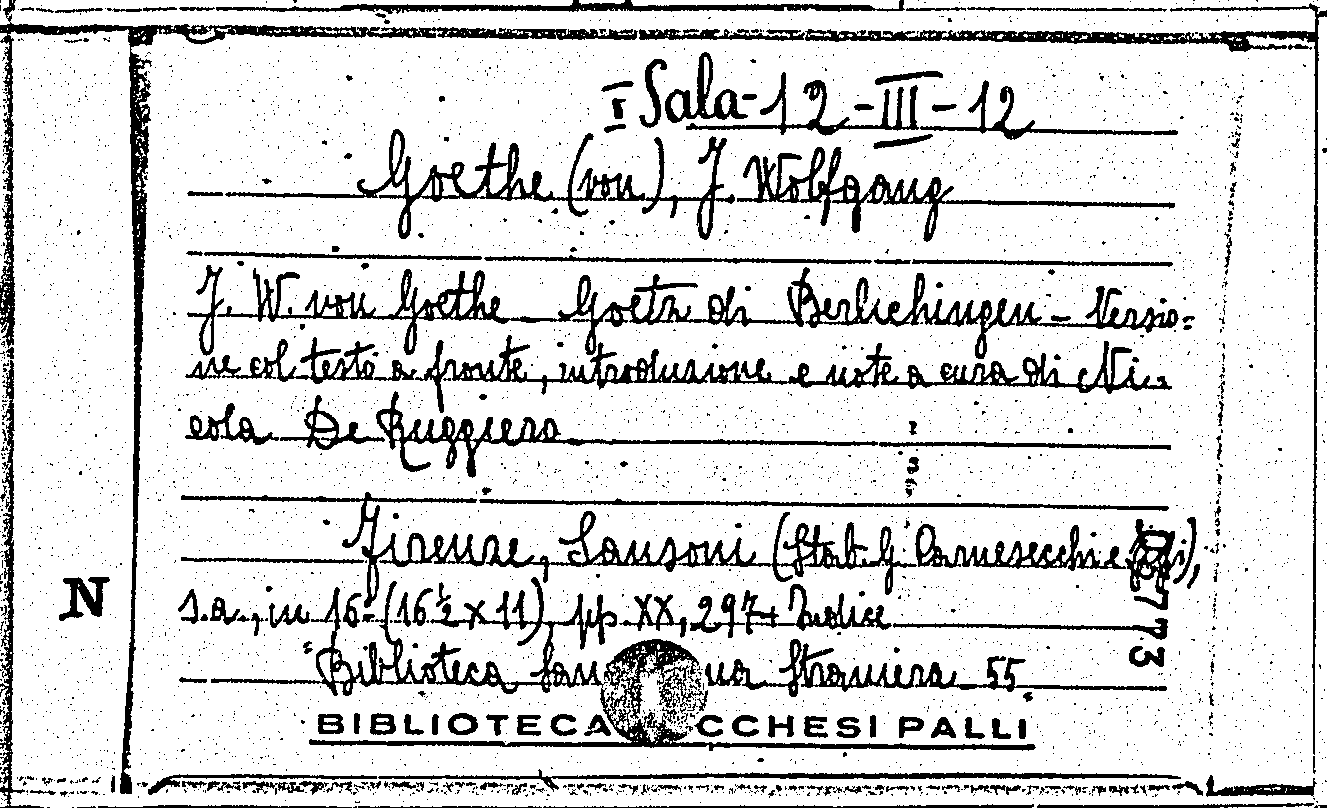 I Sala-12-III-12
Goethe (von), J. Wolfgang
J. W. von Goethe - Goetz di Berlichingen - Versio=
ne col testo a fronte, introduzione e note a cura di Ni=
cola De Ruggiero
Firenze, Sansoni (Stab. G. Carnesecchi e
s.a., in 16º (16½ x 11), pp. XX, 297 + Indice
"Biblioteca San na Straniera - 55
BIBLIOTECA CCHESI PALLI
N
773